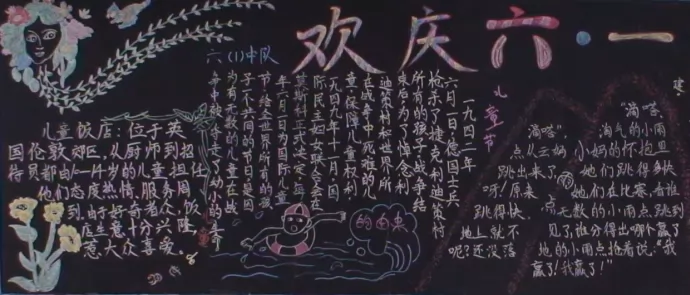 欢庆六·一
六（1）中队
儿童饭店：位于英
国伦敦郊区，从厨师到招
待员都由
岁的儿童担任
他们态度热情，服务周
到，由于好奇者众，饭
店生意十分兴隆
惹大众喜爱。
儿童节
一九四二年
六月一日，德国士兵
枪杀了捷克利迪策村
所有的孩子，战争结
束后，为了悼念利
迪策村和世界所
有战争中死难的儿
童，保障儿童权利
国际民主妇女联合会在
一九四九年十一月
莫斯科正式决定，每
年六月一日为国际儿童
节，给全世界所有的孩
子一个共同的节日，是因
为有无数的儿童在战
争中被夺去了幼小的生命
“滴嗒”
点从云妈
跳出来了
呀！原来
跳得快，
地上就不
呢？还没落
“滴嗒”
淘气的小雨
妈的怀抱里
她们跳得多快
她们在比赛，看谁
无数的小雨点跳到
见了，谁分得出哪个赢了
地的小雨点抢着说：“我
赢了！我赢了！”